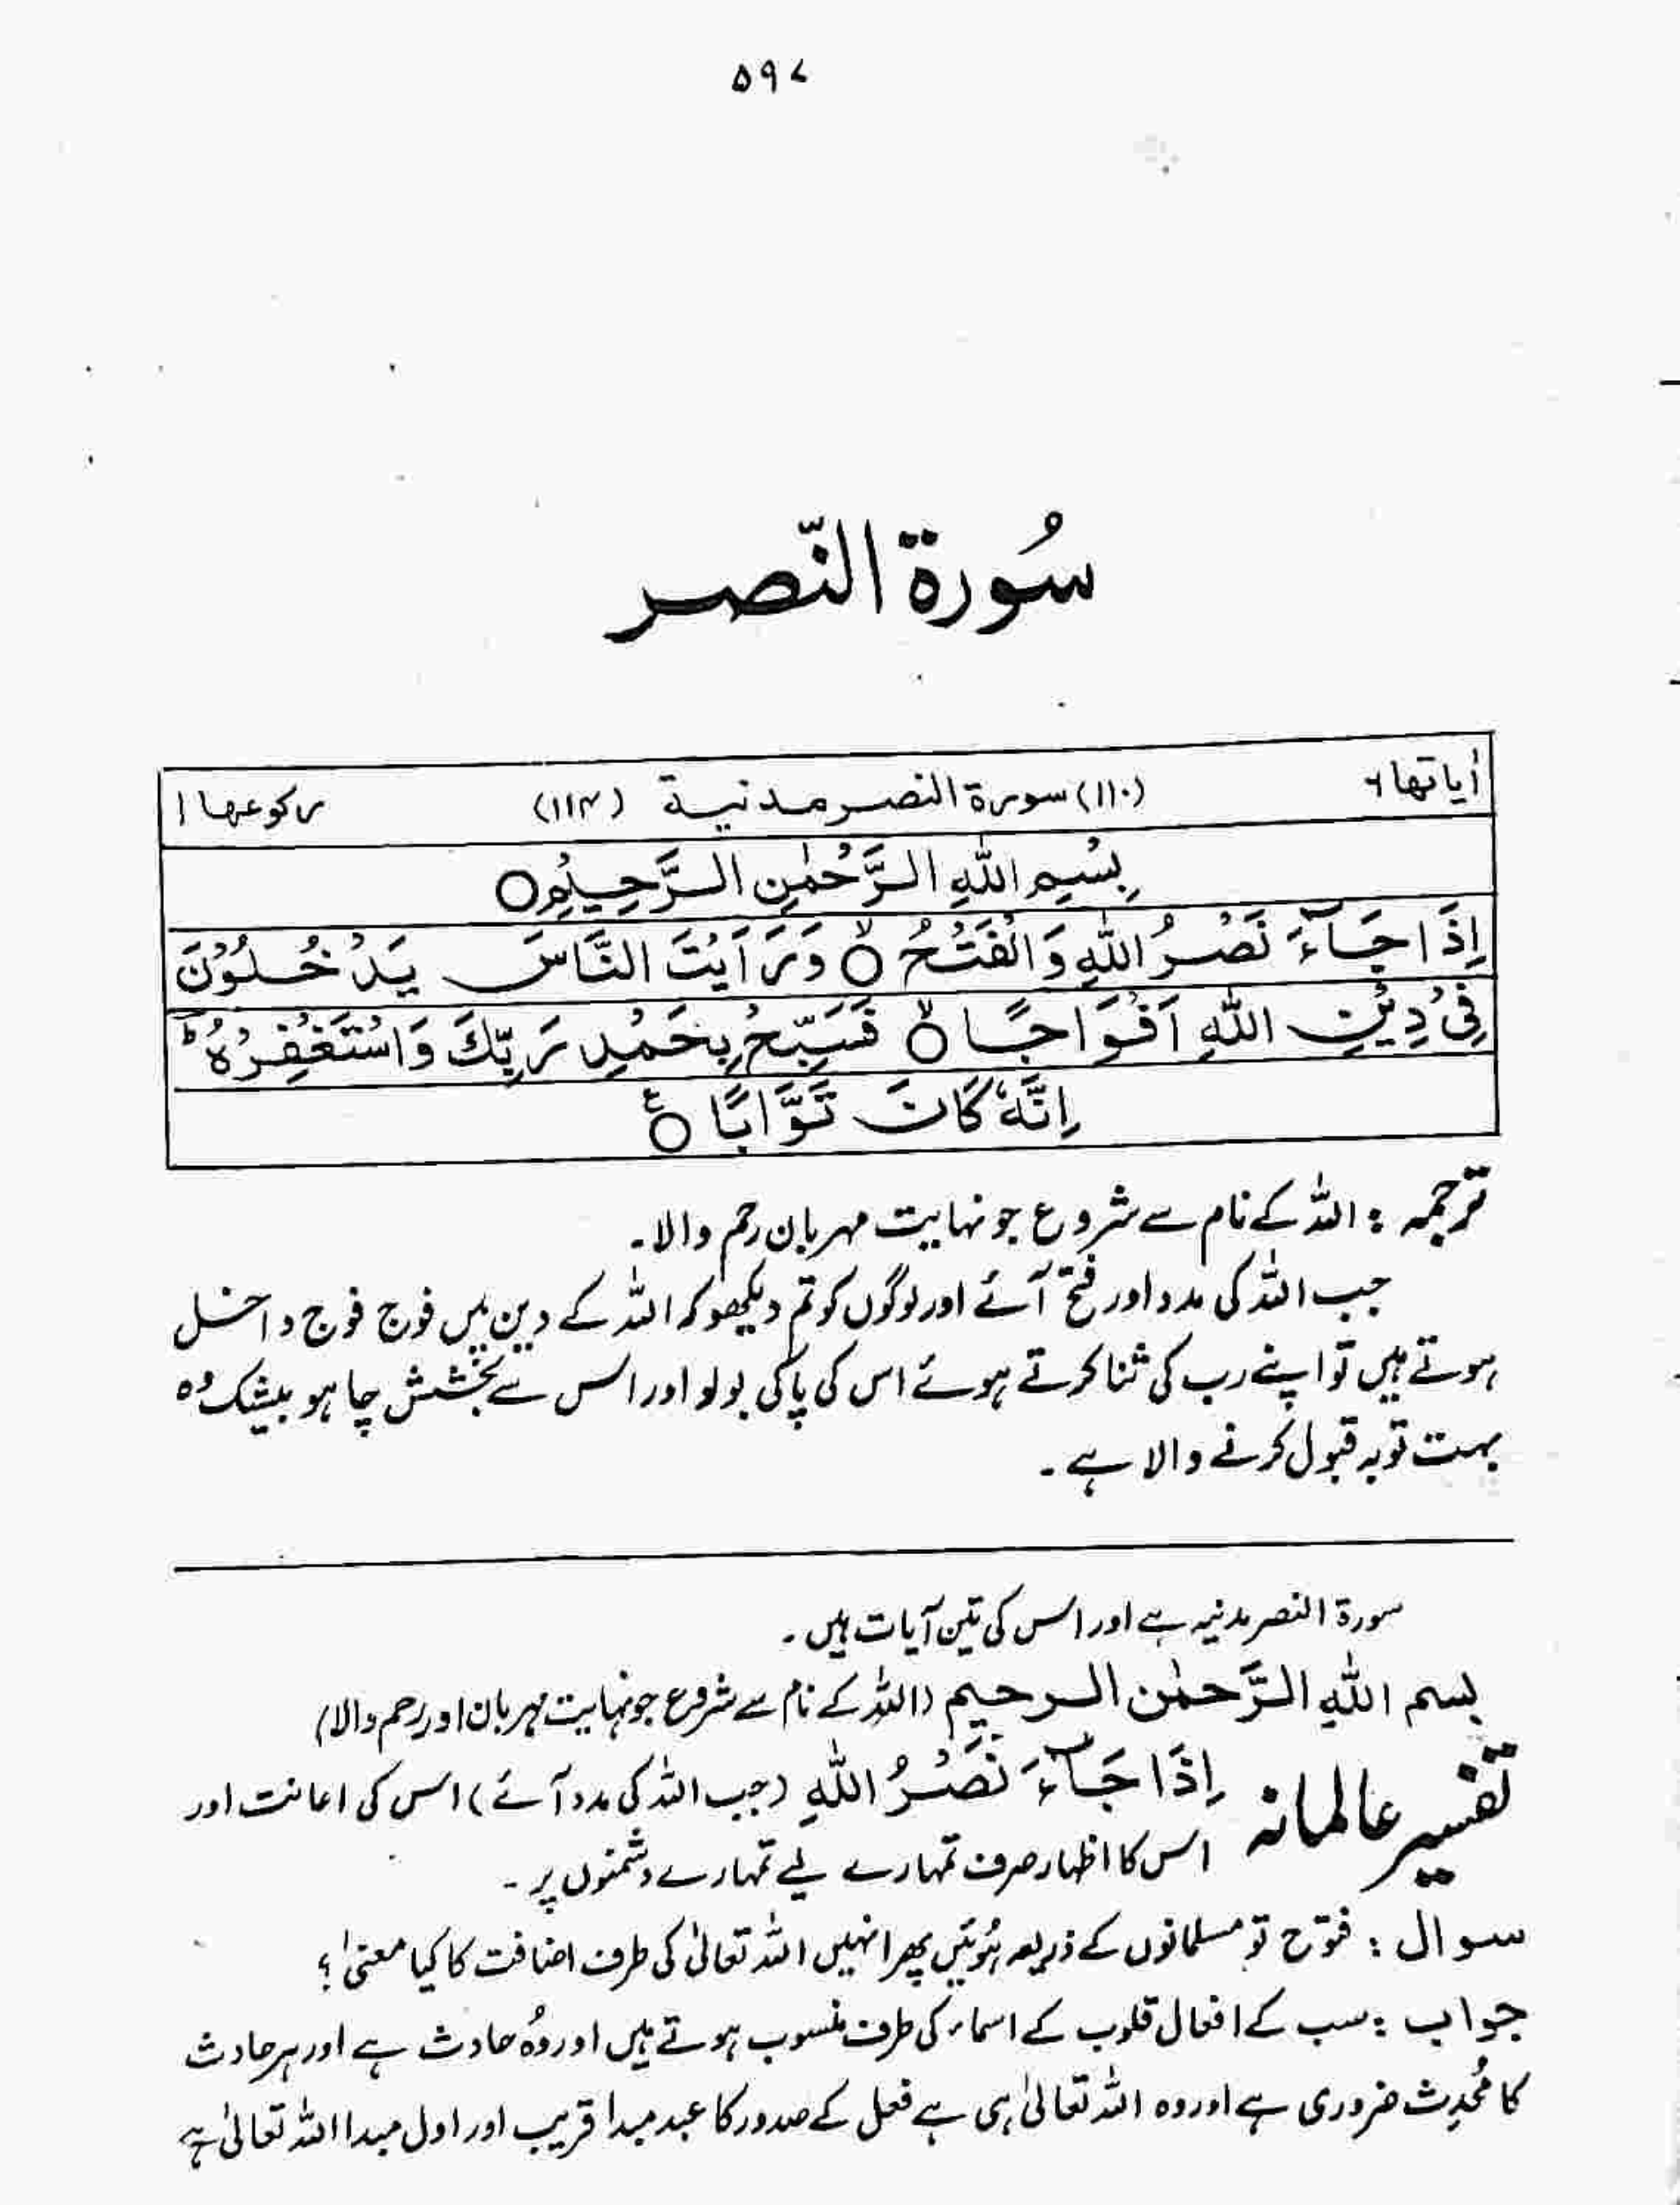 ۵۹۷
سُورۃ النّصر
اٰیاتھا ۶ (۱۱۰) سورۃ النصر مدنیۃ (۱۱۴) رکوعھا ۱
بِسْمِ اللّٰهِ الرَّحْمٰنِ الرَّحِيْمِ ○
اِذَا جَآءَ نَصْرُ اللّٰهِ وَالْفَتْحُ ○ۙ وَرَاَيْتَ النَّاسَ يَدْخُلُوْنَ
فِیْ دِيْنِ اللّٰهِ اَفْوَاجًا ○ۙ فَسَبِّحْ بِحَمْدِ رَبِّكَ وَاسْتَغْفِرْهُ ؕ
اِنَّهٗ كَانَ تَوَّابًا ○ع
ترجمہ : اللہ کے نام سے شروع جو نہایت مہربان رحم والا۔
جب اللہ کی مدد اور فتح آئے اور لوگوں کو تم دیکھو کہ اللہ کے دین میں فوج فوج داخل
ہوتے ہیں تو اپنے رب کی ثنا کرتے ہوئے اس کی پاکی بولو اور اس سے بخشش چاہو بیشک وُہ
بہت توبہ قبول کرنے والا ہے ۔
سورۃ النصر مدنیہ ہے اور اس کی تین آیات ہیں ۔
بسم اللّٰهِ الرَّحمٰن الرحیم (اللہ کے نام سے شروع جو نہایت مہربان اور رحم والا)
تفسیر عالمانہ اِذَا جَآءَ نَصْرُ اللّٰهِ (جب اللہ کی مدد آئے) اس کی اعانت اور
اس کا اظہار صرف تمہارے لیے تمہارے دشمنوں پر ۔
سوال : فتوح تو مسلمانوں کے ذریعہ ہُوئیں پھر انہیں اللہ تعالیٰ کی طرف اضافت کا کیا معنیٰ ؟
جواب : سب کے افعال قلوب کے اسماء کی طرف منسوب ہوتے ہیں اور وُہ حادث ہے اور ہر حادث
کا مُحدِث ضروری ہے اور وہ اللہ تعالیٰ ہی ہے فعل کے صدور کا عبد مبدا قریب اور اول مبدا اللہ تعالیٰ ہے